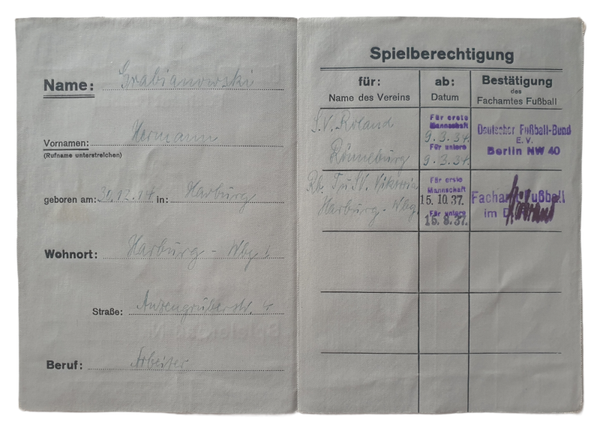 Name: Grabianowski
Vornamen: Hermann
(Rufname unterstreichen)
geboren am: 30.12.14 in: Harburg
Wohnort: Harburg - Wbg 1
Straße: Anzengruberstr. 4
Beruf: Arbeiter
Spielberechtigung
für: ab: Bestätigung
Name des Vereins Datum des Fachamtes Fußball
S.V. Roland Für erste Mannschaft 9. 3. 34. Deutscher Fußball-Bund
Rönneburg Für untere 9. 3. 34. E.V. Berlin NW 40
Für erste Mannschaft
Harburg - Wbg. 15. 10. 37. Fachamt Fußball
Für untere 15. 8. 37. im D.